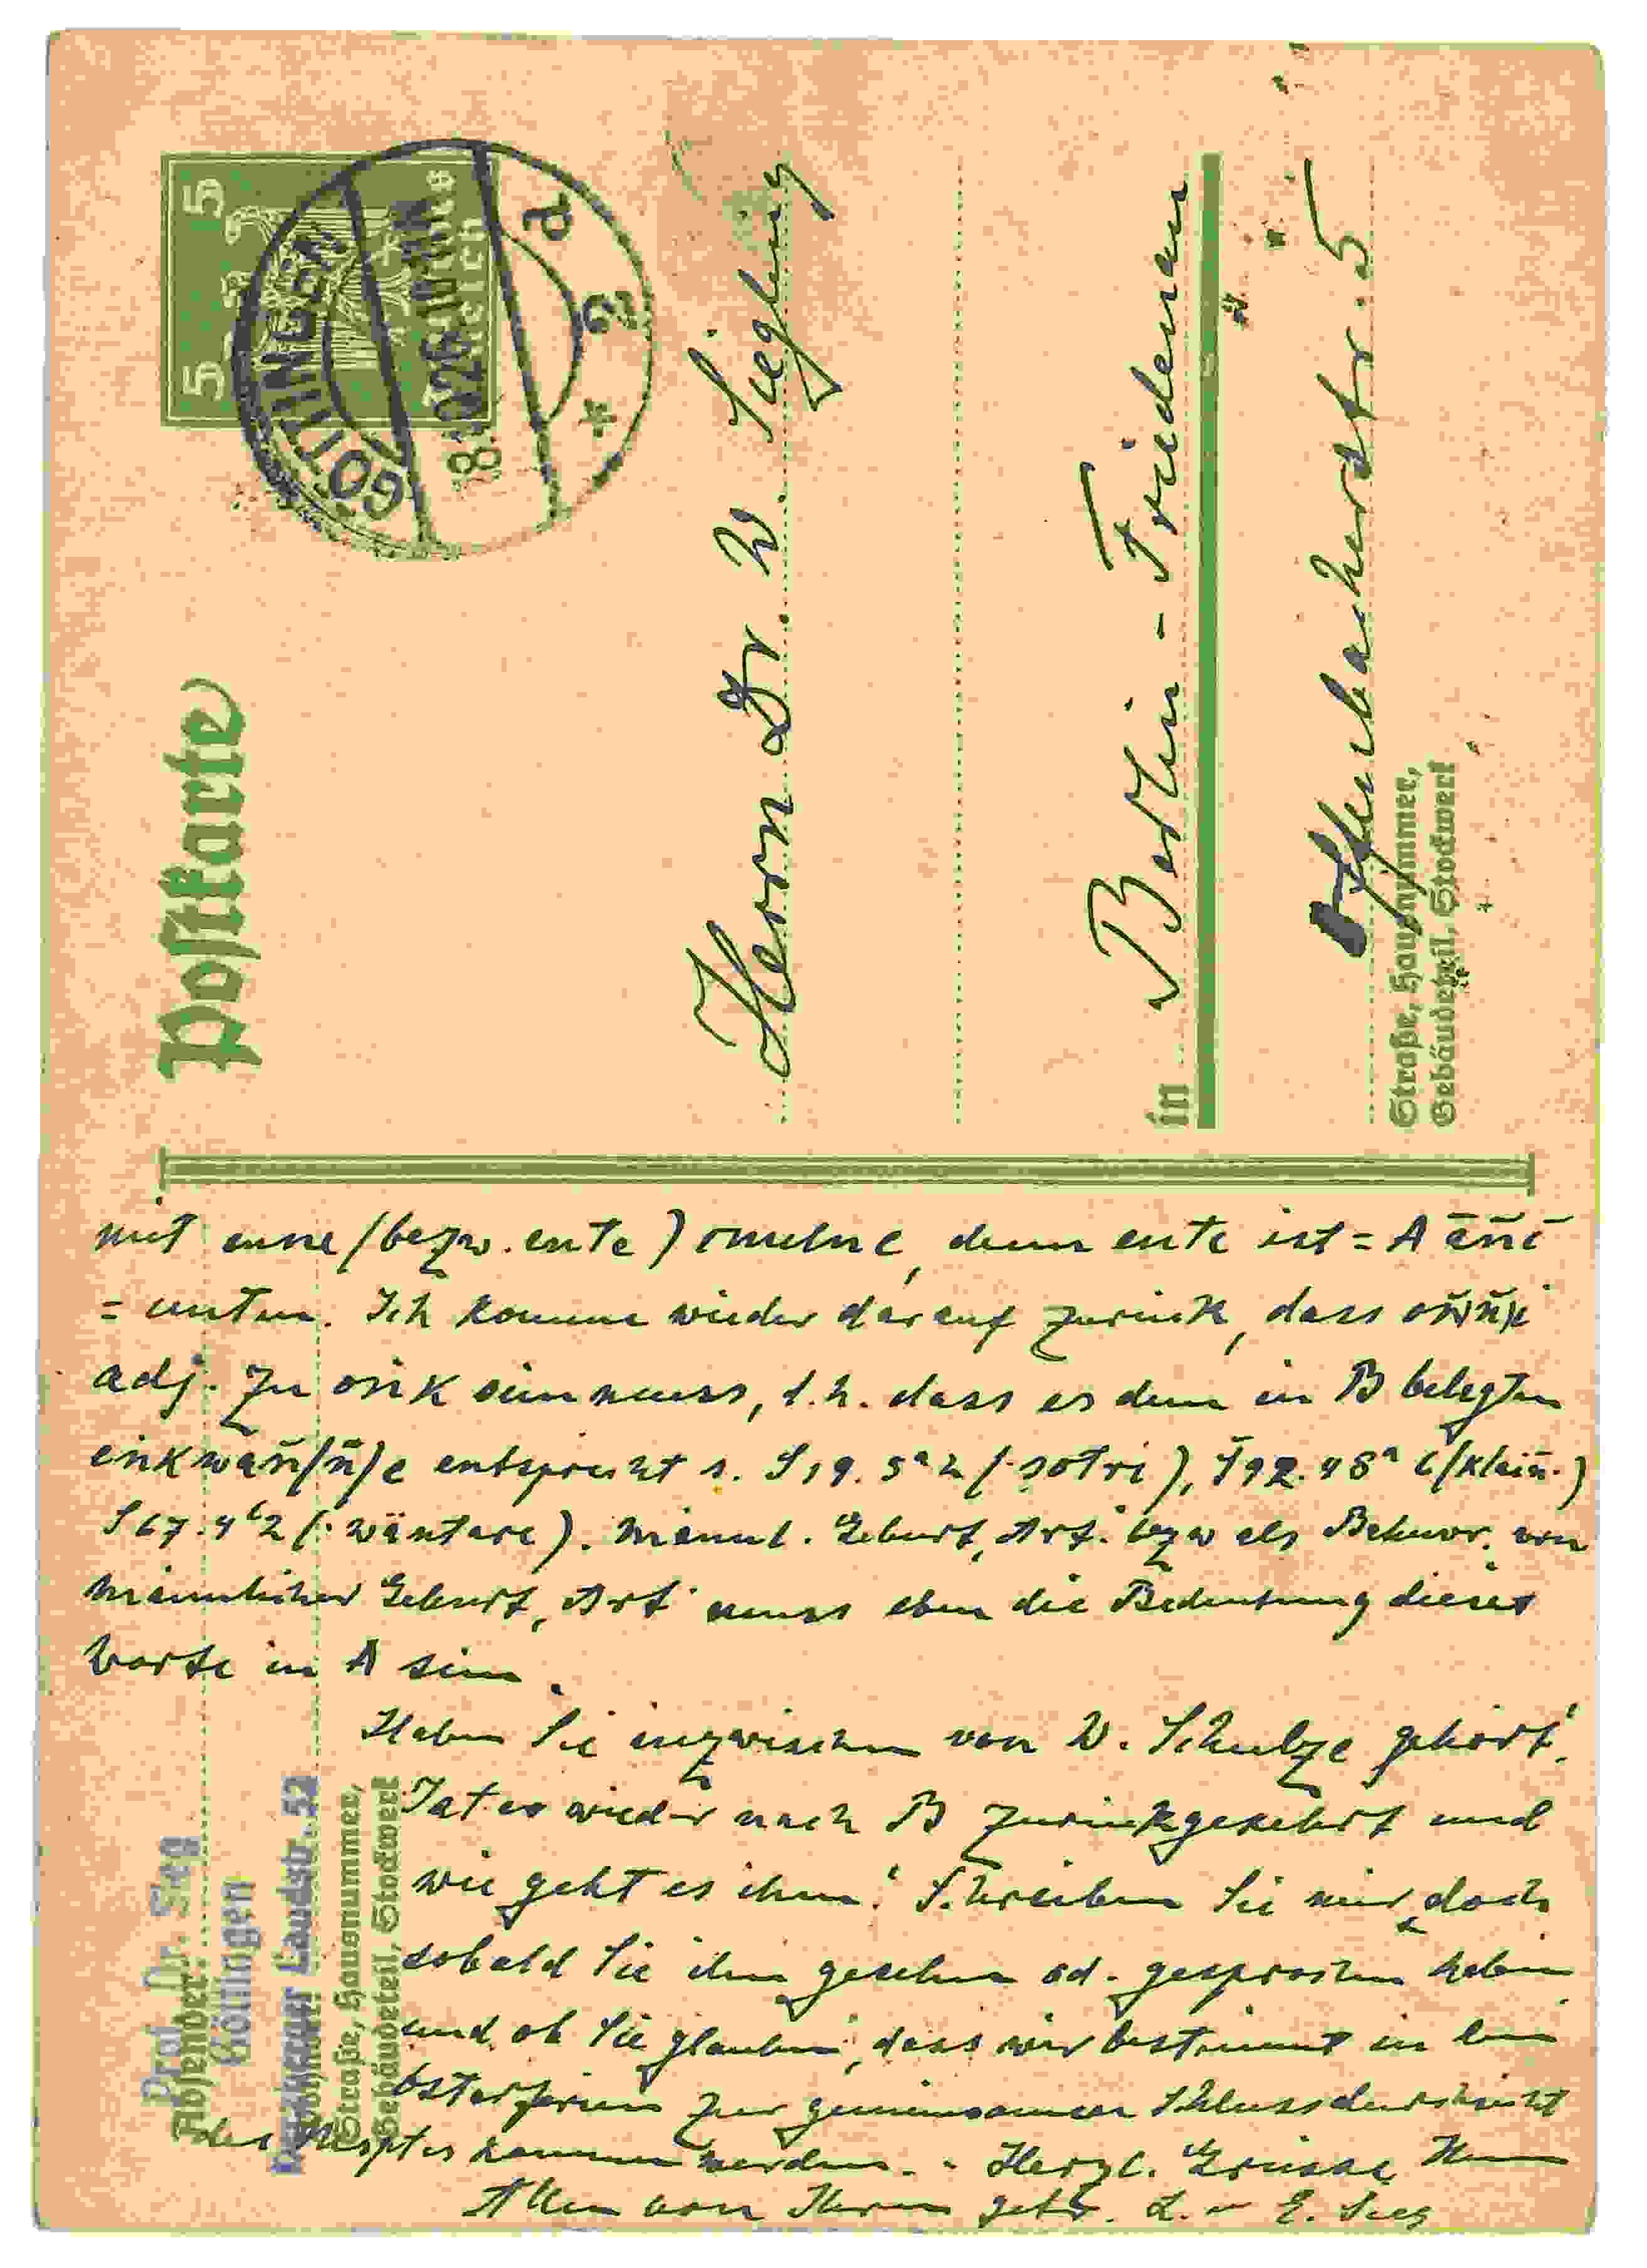 Postkarte
5 5
Deutsches Reich
GÖTTINGEN
Herrn Dr. W. Siegling
in Berlin - Friedenau
Offenbacherstr. 5
Straße, Hausnummer,
Gebäudeteil, Stockwerk
mit enne (bezw. ente) omelne, denn ente ist = A āñc
= unten. Ich komme wieder darauf zurück, dass oṅkñ(ñ)i
adj. zu oṅk sein muss, d.h. dass es dem in B belegten
eṅkwañ(ñ)e entspricht s. S 19. 5ᵃ 2 (· ṣotri), Š 92. 48ᵃ 6 (klaiñ·)
S 67. 4ᵇ 2 (· wäntare). Männl. Geburt, Art. bezw als von
männlicher Geburt, Art' muss eben die Bedeutung dieses
Worte in A sein.
Haben Sie inzwischen von W. Schulze gehört?
Ist er wieder nach B zurückgekehrt und
wie geht es ihm? Schreiben Sie mir doch
sobald Sie ihn gesehen od. gesprochen haben
und ob Sie glauben, dass wir bestimmt in den
Osterferien zur gemeinsamen Schlussdurchsicht
des Msptes kommen werden. - Herzl. Grüsse Ihnen
Allen von Ihrem getr. L. - E. Sieg
Absender:
Prof. Dr. Sieg
Göttingen
Landstr. 52
Wohnort
Straße, Hausnummer,
Gebäudeteil, Stockwerk